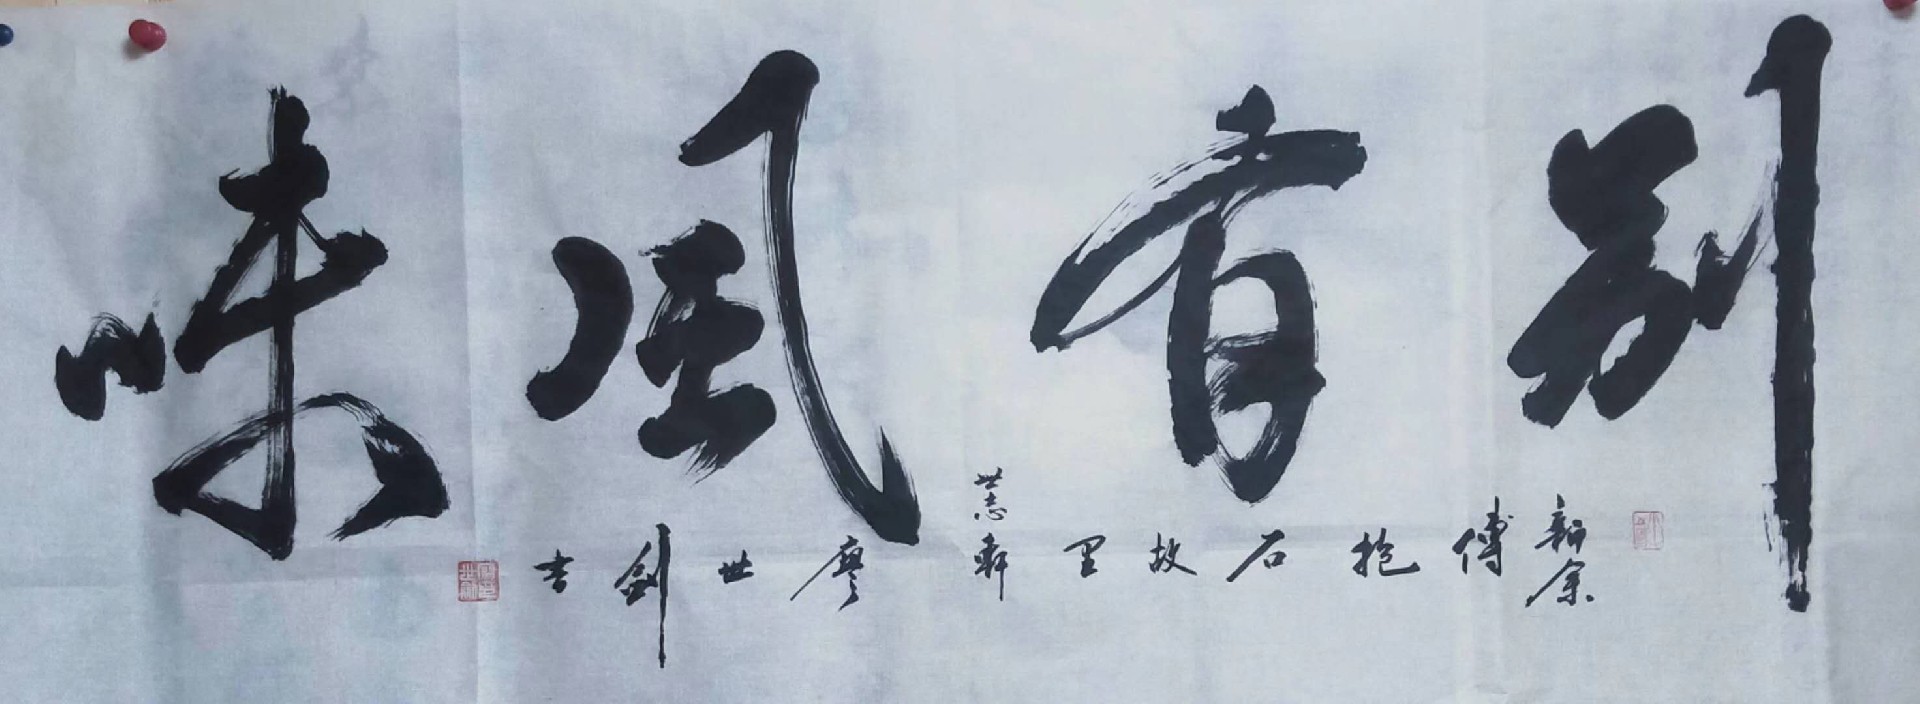 别有风味
新余傅抱石故里世志軒廖世剑书